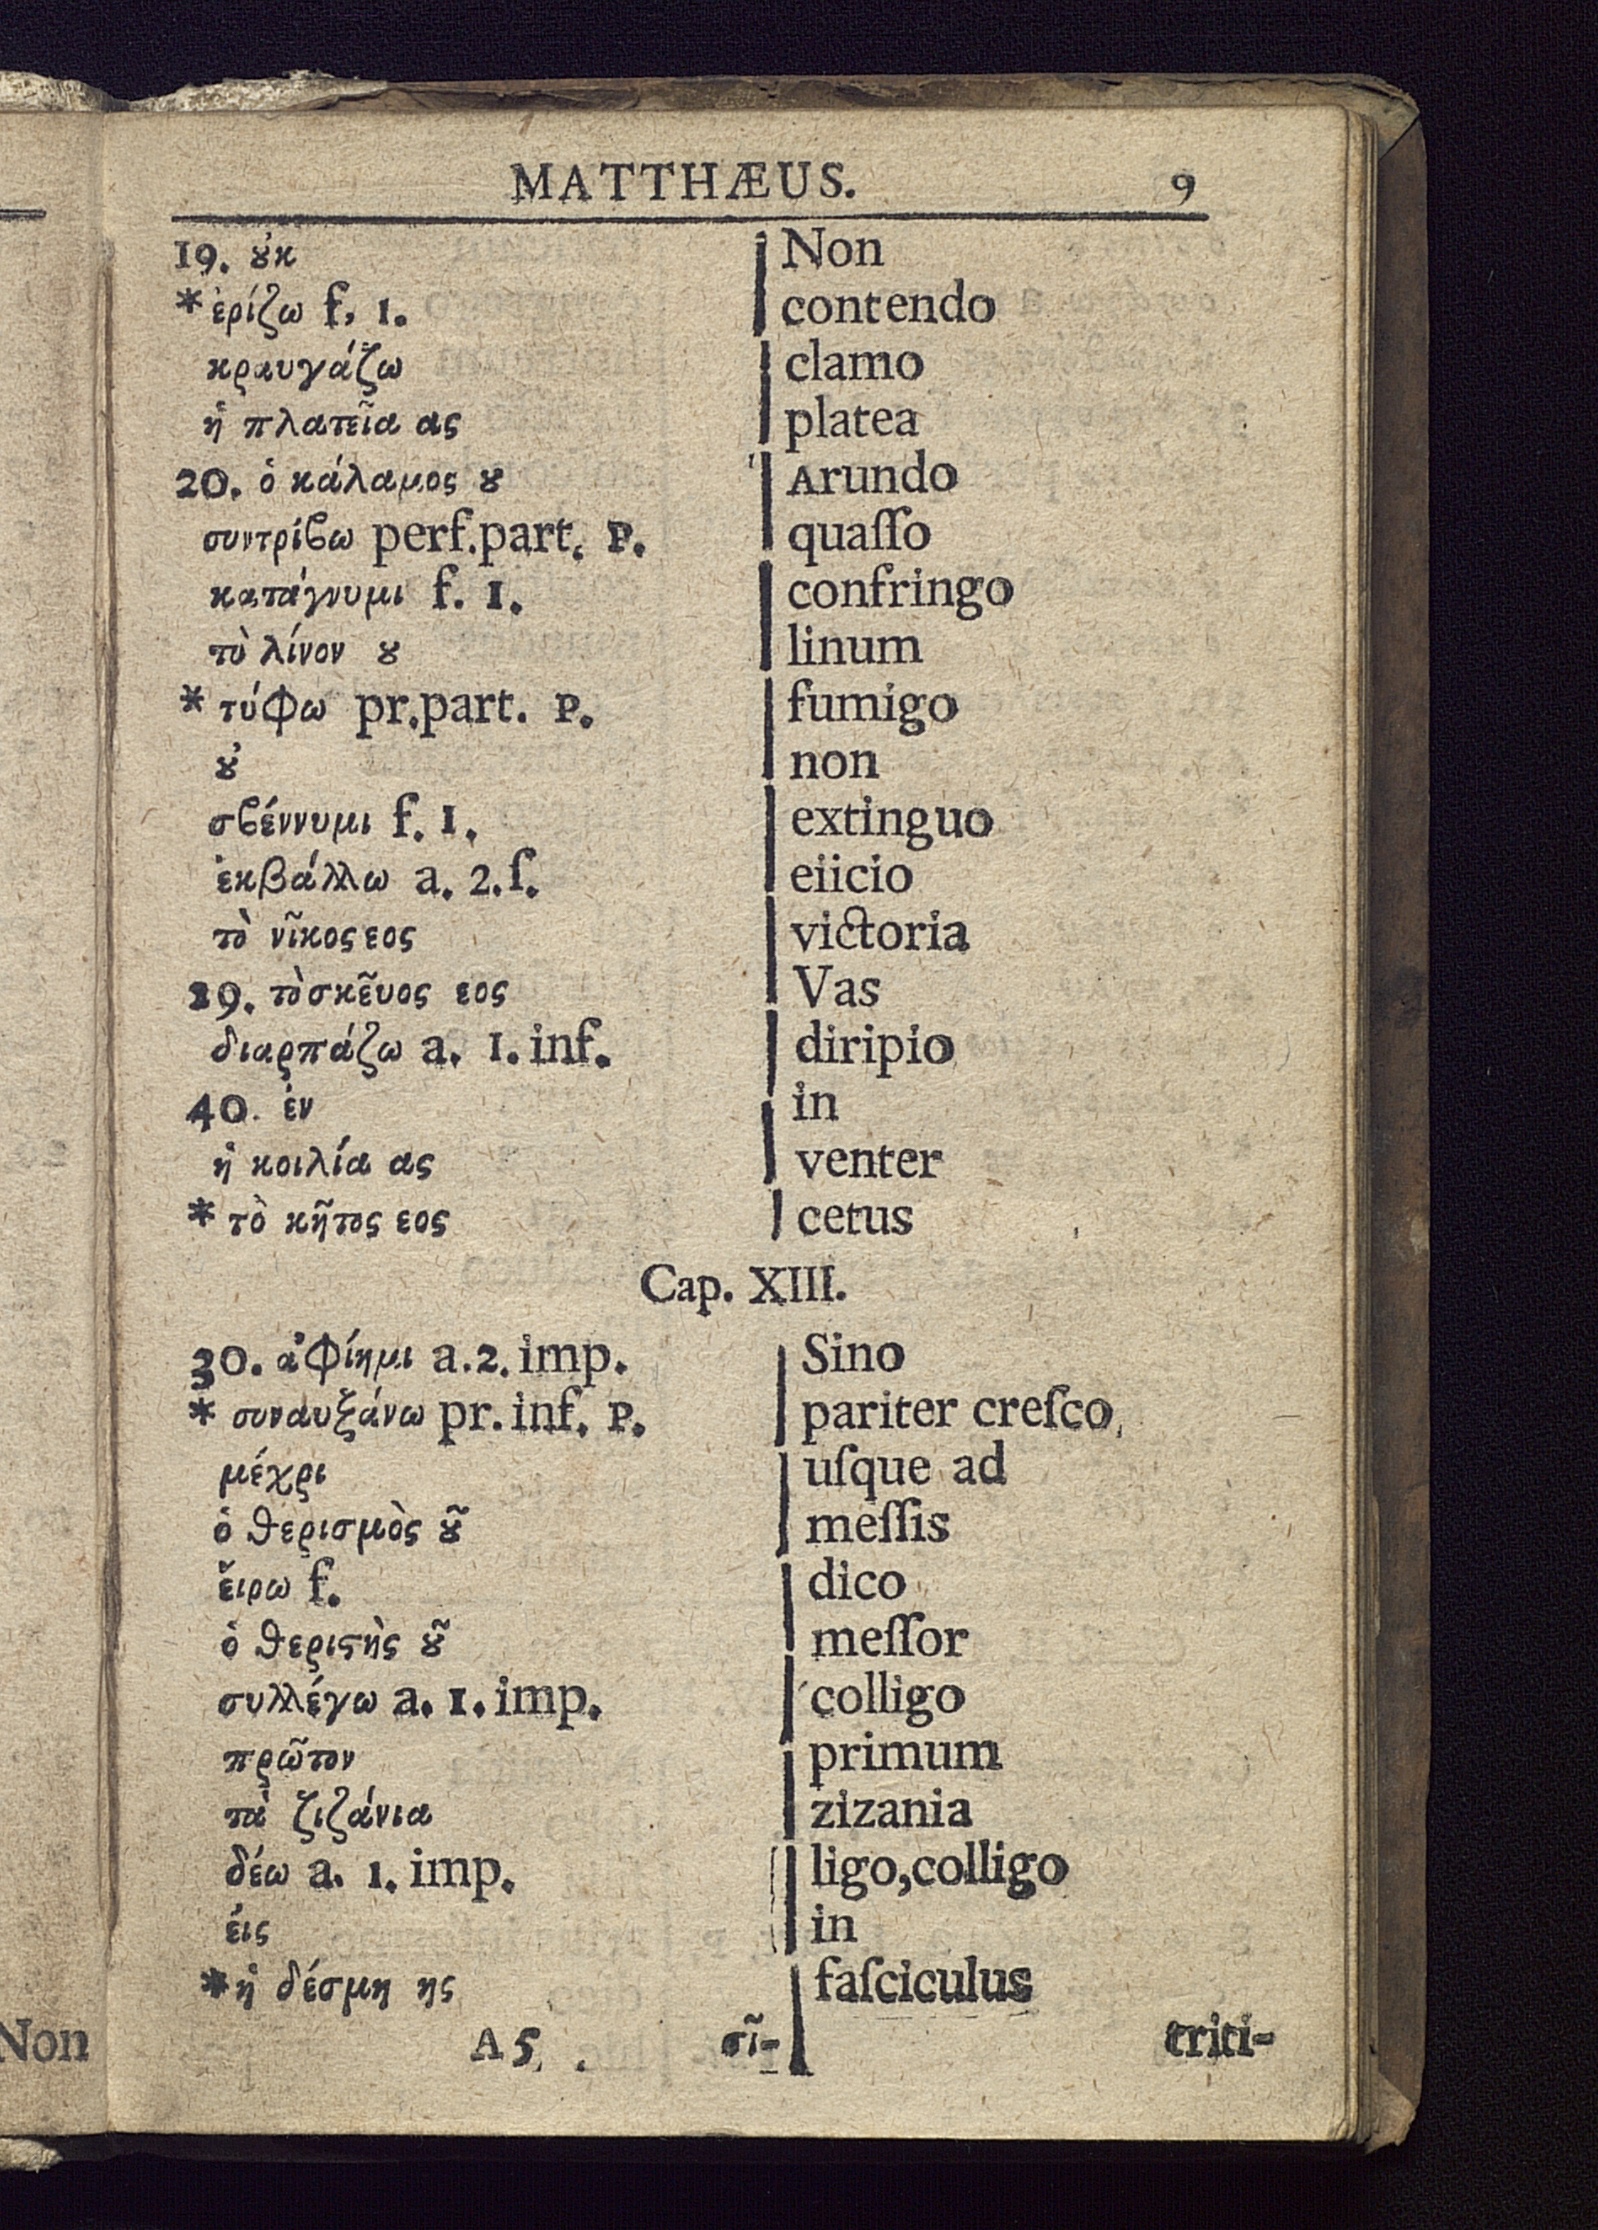 MATTHÆUS. 9
19. ȣ̓κ | Non
* ἐρίζω f. 1. | contendo
κραυγάζω | clamo
ἡ πλατεῖα ας | platea
20. ὁ κάλαμος ȣ | Arundo
συντρίϐω perf.part. P. | quaſſo
κατάγνυμι f. 1. | confringo
τὸ λίνον ȣ | linum
* τύφω pr.part. P. | fumigo
ȣ̓ | non
σϐέννυμι f. 1. | extinguo
ἐκβάλλω a. 2.ſ. | eiicio
τὸ νῖκος εος | victoria
29. τὸ σκεῦος εος | Vas
διαρπάζω a. 1. inf. | diripio
40. ἐν | in
ἡ κοιλία ας | venter
* τὸ κῆτος εος | cetus
Cap. XIII.
30. ἀφίημι a.2. imp. | Sino
* συναυξάνω pr. inf. P. | pariter creſco,
μέχρι | uſque ad
ὁ θερισμὸς ȣ͂ | meſſis
ἔιρω f. | dico
ὁ θεριϛὴς ȣ͂ | meſſor
συλλέγω a. 1. imp. | colligo
πρῶτον | primum
τὰ ζιζάνια | zizania
δέω a. 1. imp. | ligo,colligo
ἐις | in
* ἡ δέσμη ης | faſciculus
Non
A 5 σῖ- triti-